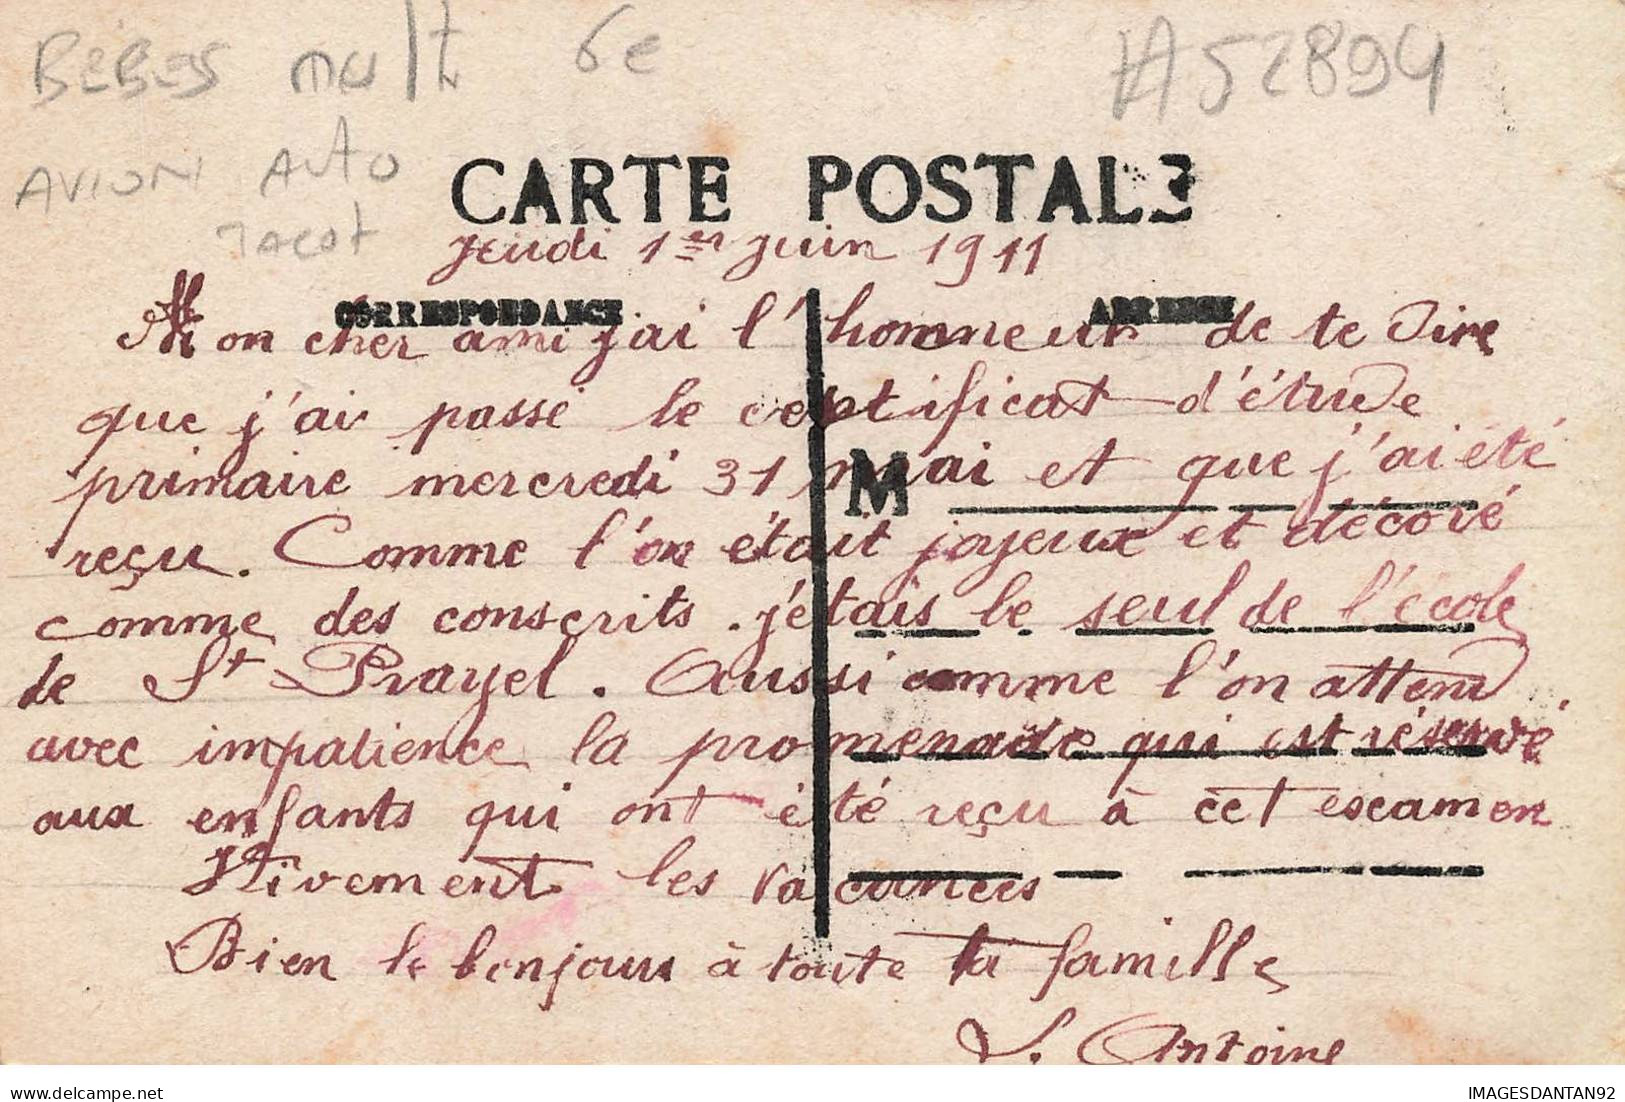 BEBES mult 6e
#A52894
AVION AUTO
Tacot
CARTE POSTALE
Jeudi 1er juin 1911
CORRESPONDANCE
ADRESSE
Mon cher ami j'ai l'honneur de te dire
que j'ai passé le certificat d'étude
primaire mercredi 31 mai et que j'ai été
M
reçu. Comme l'on était joyeux et décoré
comme des conscrits. j'étais le seul de l'école
de St Prayel. Aussi comme l'on attend
avec impatience la promenade qui est réservé
aux enfants qui ont été reçu à cet escamen
Vivement les vacances
Bien le bonjour à toute la famille
Antoine
IMAGESDANTAN92